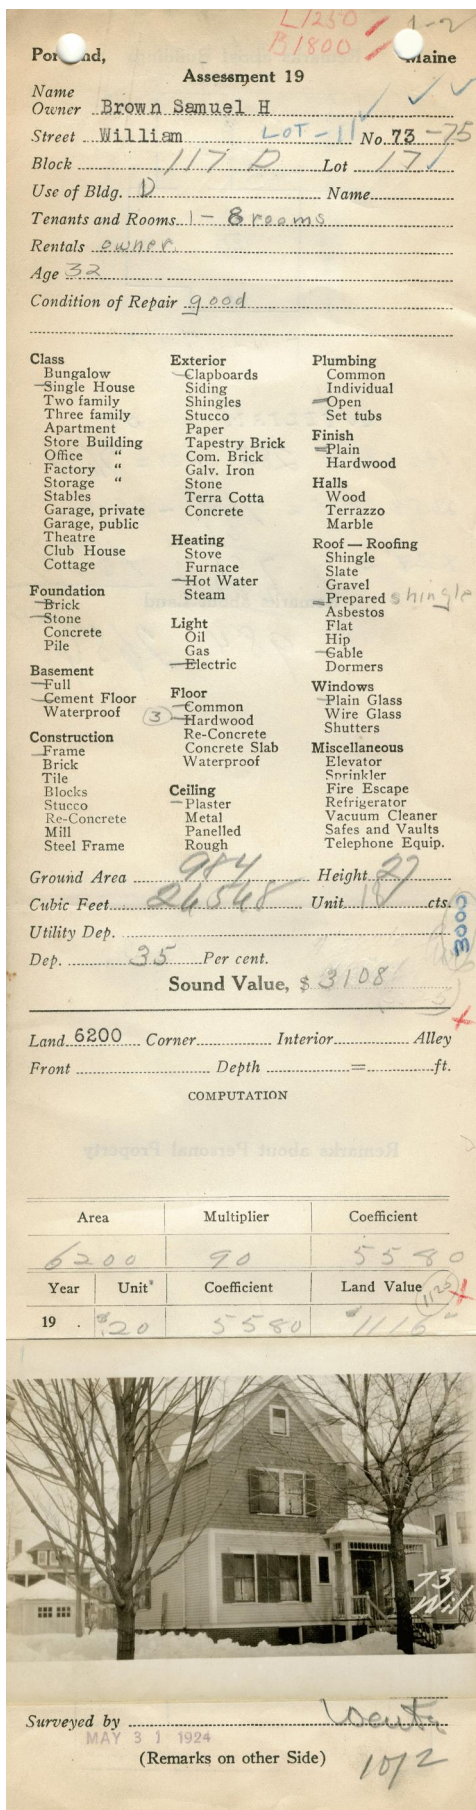 L1250
1-2
B1800
Maine
Assessment 19
Name
Owner Brown Samuel H
Street William LOT-11 No. 73-75
Block 117 D Lot 17
Use of Bldg. D Name
Tenants and Rooms 1 - 8 rooms
Rentals owner
Age 32
Condition of Repair good
Class
Bungalow
Single House
Two family
Three family
Apartment
Store Building
Office "
Factory "
Storage "
Stables
Garage, private
Garage, public
Theatre
Club House
Cottage
Foundation
Brick
Stone
Concrete
Pile
Basement
Full
Cement Floor
Waterproof
Construction
Frame
Brick
Tile
Blocks
Stucco
Re-Concrete
Mill
Steel Frame
Exterior
Clapboards
Siding
Shingles
Stucco
Paper
Tapestry Brick
Com. Brick
Galv. Iron
Stone
Terra Cotta
Concrete
Heating
Stove
Furnace
Hot Water
Steam
Light
Oil
Gas
Electric
Floor
Common
3 Hardwood
Re-Concrete
Concrete Slab
Waterproof
Ceiling
Plaster
Metal
Panelled
Rough
Plumbing
Common
Individual
Open
Set tubs
Finish
Plain
Hardwood
Halls
Wood
Terrazzo
Marble
Roof — Roofing
Shingle
Slate
Gravel
Prepared shingle
Asbestos
Flat
Hip
Gable
Dormers
Windows
Plain Glass
Wire Glass
Shutters
Miscellaneous
Elevator
Sprinkler
Fire Escape
Refrigerator
Vacuum Cleaner
Safes and Vaults
Telephone Equip.
Ground Area 984 Height 27
Cubic Feet 26568 Unit 18 cts.
3000
Utility Dep.
Dep. 35 Per cent.
Sound Value, $ 3108
Land 6200 Corner Interior Alley
Front Depth = ft.
COMPUTATION
Remarks about Personal Property
Area Multiplier Coefficient
6200 90 5580
Year Unit Coefficient Land Value 1125
19 $.20 5580 $1116
73
Wil
Surveyed by
MAY 31 1924
(Remarks on other Side)
10/2